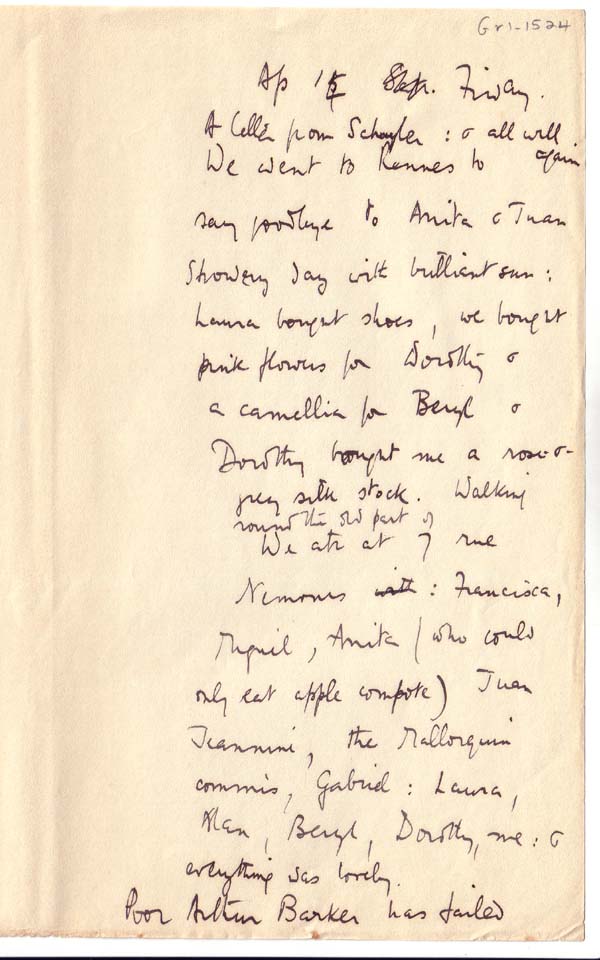 Gr1-1524
Ap 15 Sept. Friday.
A letter from Schuyler : & all well
We went to Rennes to again
say goodbye to Anita & Juan
Showery day with brilliant sun :
Laura bought shoes, we bought
pink flowers for Dorothy &
a camellia for Beryl &
Dorothy bought me a rose-&-
grey silk stock. Walking
round the old part of
We ate at 7 rue
Nemours with : Francisca,
Miguel, Anita (who could
only eat apple compote) Juan
Jeannine, the Mallorquin
commis, Gabriel : Laura,
Alan, Beryl, Dorothy, me : &
everything was lovely.
Poor Arthur Barker has failed